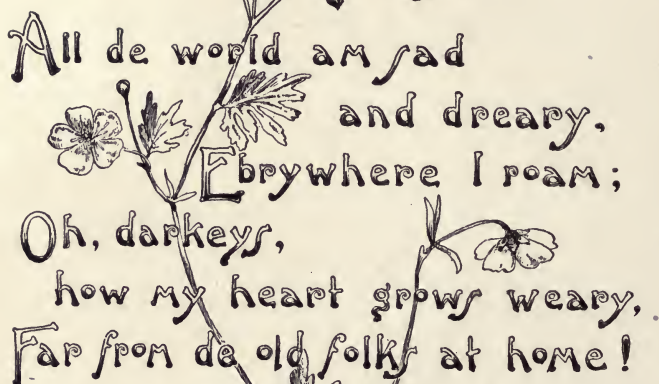 All de world am sad
and dreary,
Ebrywhere I roam;
Oh, darkeys,
how my heart grows weary,
Far from de old folks at home!